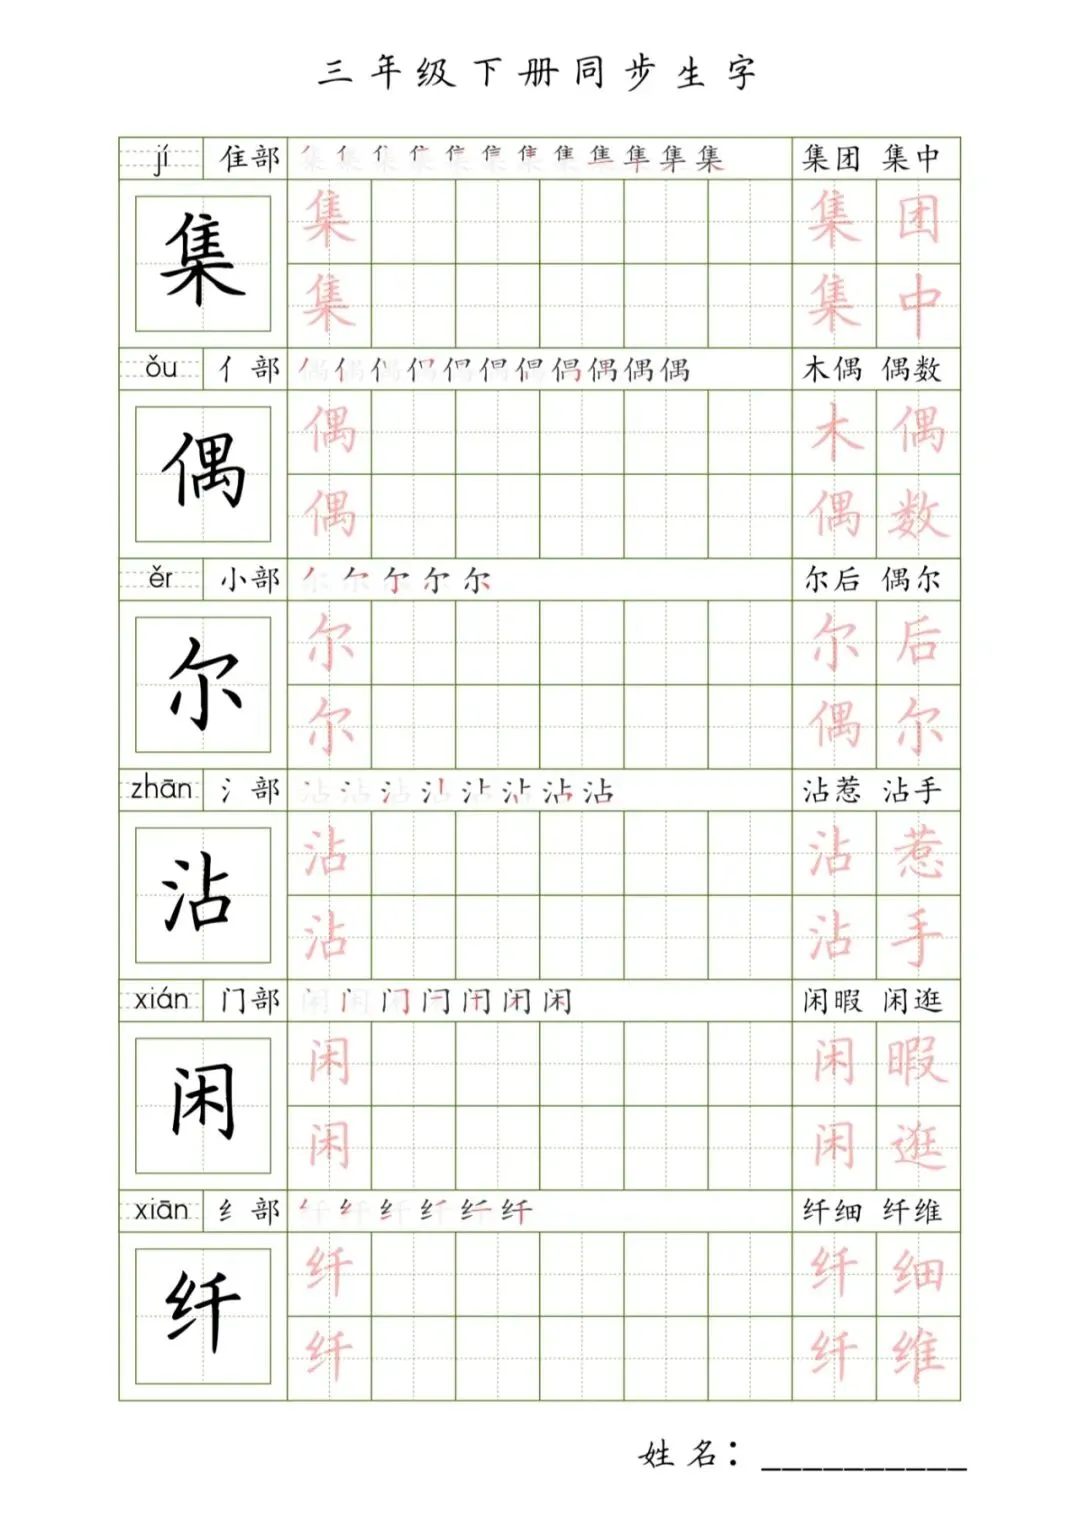 三年级下册同步生字
jí 隹部 集团 集中
集 集 集 团
集 集 中
ǒu 亻部 木偶 偶数
偶 偶 木 偶
偶 偶 数
ěr 小部 尔后 偶尔
尔 尔 尔 后
尔 偶 尔
zhān 氵部 沾惹 沾手
沾 沾 沾 惹
沾 沾 手
xián 门部 闲暇 闲逛
闲 闲 闲 暇
闲 闲 逛
xiān 纟部 纤细 纤维
纤 纤 纤 细
纤 纤 维
姓名：__________